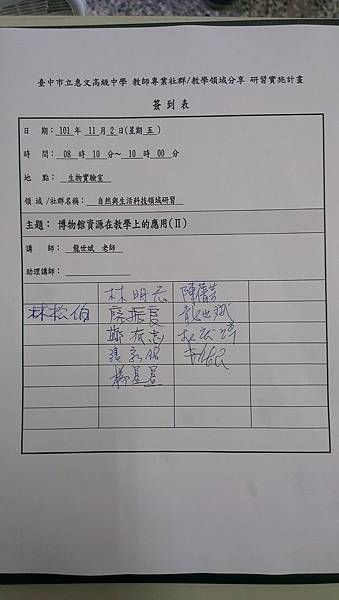 臺中市立惠文高級中學 教師專業社群/教學領域分享 研習實施計畫
簽到表
日 期: 101 年 11 月 2 日(星期 五 )
時 間: 08 時 10 分～ 10 時 00 分
地 點: 生物實驗室
領 域 /社群名稱: 自然與生活科技領域研習
主題: 博物館資源在教學上的應用(Ⅱ)
講 師: 龍世斌 老師
助理講師:
林明宏 陳
林松伯 廖振良 龍世斌
鄭有志
楊星星